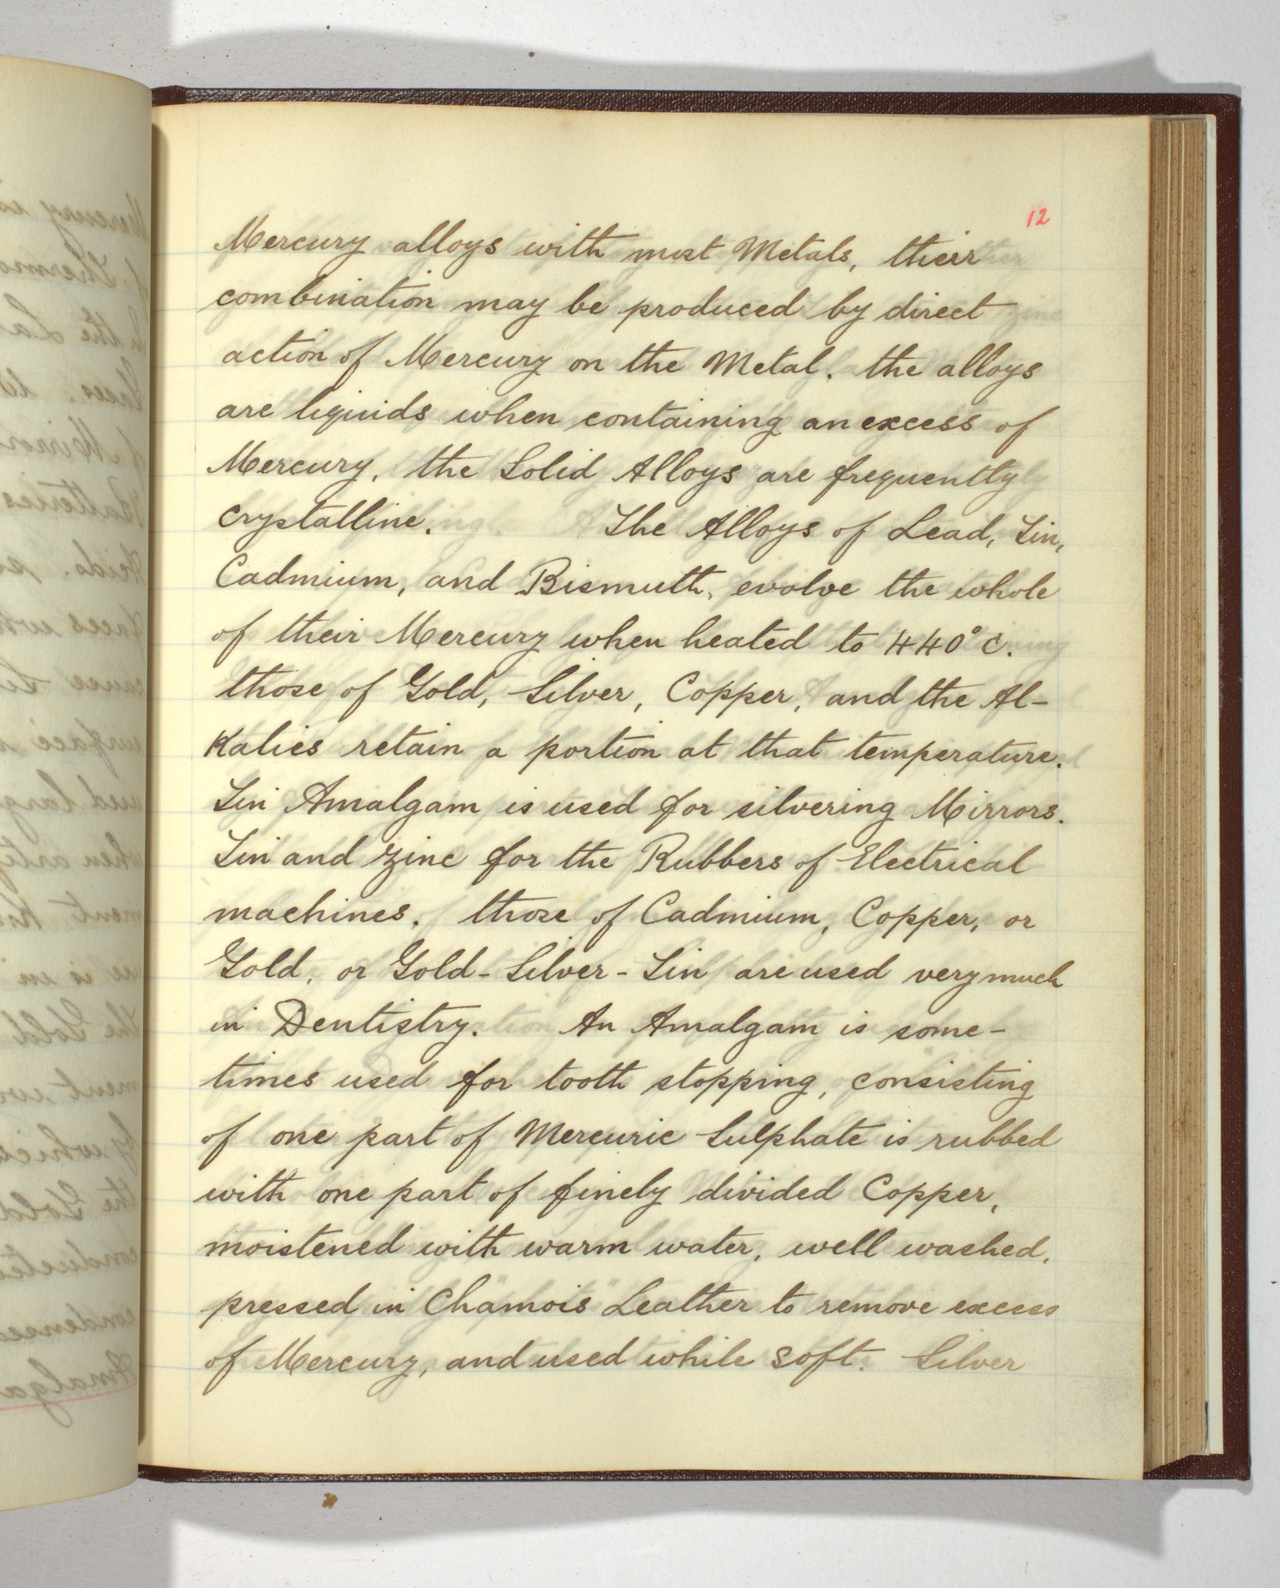 12
Mercury alloys with most Metals, their
combination may be produced by direct
action of Mercury on the Metal. the alloys
are liquids when containing an excess of
Mercury, the Solid Alloys are frequently
crystalline. The Alloys of Lead, Tin,
Cadmium, and Bismuth, evolve the whole
of their Mercury when heated to 440° C.
those of Gold, Silver, Copper, and the Al-
Kalies retain a portion at that temperature.
Tin Amalgam is used for silvering Mirrors.
Tin and Zinc for the Rubbers of Electrical
machines. those of Cadmium, Copper, or
Gold, or Gold-Silver-Tin are used very much
in Dentistry. An Amalgam is some-
times used for tooth stopping, consisting
of one part of Mercuric Sulphate is rubbed
with one part of finely divided Copper,
moistened with warm water, well washed,
pressed in "Chamois" Leather to remove excess
of Mercury, and used while soft. Silver